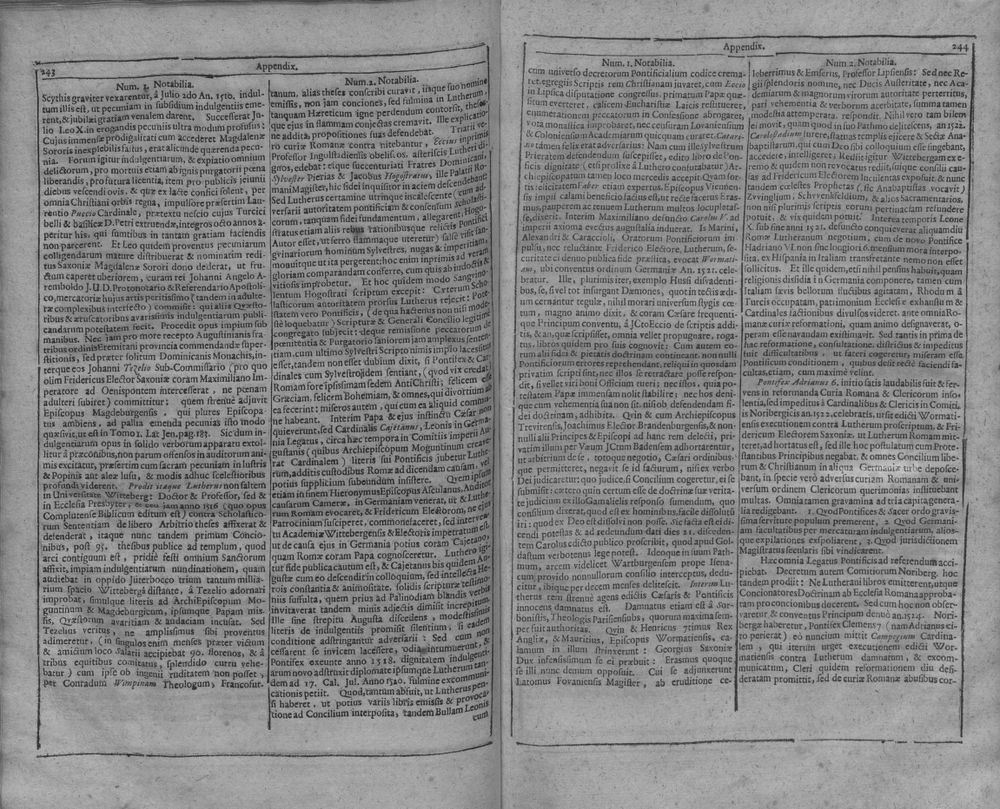 243
Appendix.
Num. 1. Notabilia.
Scythis graviter vexarentur, à Julio 2do An. 1510. indul-
tum illis est, ut pecuniam in subsidium indulgentiis eme-
rent, & jubilæi gratiam venalem darent. Successerat Ju-
lio Leo X. in erogandis pecuniis ultra modum profusus:
Cujus immensæ prodigalitati cum accederet Magdalenæ
Sororis inexplebilis fastus, erat aliunde quærenda pecu-
nia. Forum igitur indulgentiarum, & expiatio omnium
delictorum, pro mortuis etiam ab ignis purgatorii pœna
liberandis, pro futura licentia, item pro publicis jejunii
diebus vescendi ovis, & quæ ex lacte confici solent, per
omnia Christiani orbis regna, impulsore præsertim Lau-
rentio Puccio Cardinale, prætextu nescio cujus Turcici
belli & basilicæ D. Petri extruendæ, integros octo annos a-
peritur his, qui sumtibus in tantam gratiam faciendis
non parcerent. Et Leo quidem proventus pecuniarum
colligendarum mature distribuerat & nominatim redi-
tus Saxoniæ Magdalenæ Sorori dono dederat, ut fru-
ctum caperet uberiorem, curam rei Johanni Angelo A-
remboldo J.U.D. Protonotario & Referendario Apostoli-
co, mercatoriæ hujus artis peritissimo (tandem in adulte-
ræ complexibus interfecto) commisit: qualia Quæsto-
ribus & æruscatoribus avarissimis indulgentiarum publi-
candarum potestatem fecit. Procedit opus impium sub
manibus. Nec jam pro more recepto Augustinianis fra-
tribus ordinis Eremitani provincia commendandæ super-
stitionis, sed præter solitum Dominicanis Monachis, in-
terque eos Johanni Tezelio Sub-Commissario (pro quo
olim Fridericus Elector Saxoniæ coram Maximiliano Im-
peratore ad Oenispontem intercesserat, ne pœnam
adulteri subiret) committitur: quem strenue adjuvit
Episcopus Magdeburgensis, qui plures Episcopa-
tus ambiens, ad pallia emenda pecunias isto modo
quæsivit, ut est in Tomo 1. Lat. Jen. pag. 183. Sic dum in-
dulgentiarum opus in solido verborum apparatu extol-
litur à præconibus, non parum offensos in auditorum ani-
mis excitatur, præsertim cum sacram pecuniam in lustris
& Popinis aut aleæ lusu, & modis adhuc scelestioribus
profundi viderent. Prodit itaque Lutherus non saltem
in Universitate Witteberg: Doctor & Professor, sed &
in Ecclesia Presbyter, & eod. jam anno 1516 (quo opus
Complutense Biblicum editum est) contra Scholastico-
rum Sententiam de libero Arbitrio theses affixerat &
defenderat, itaque nunc tandem primum Concio-
nibus, post 95. thesibus publice ad templum, quod
arci contiguum est, pridiè festi omnium Sanctorum
affixit, impiam indulgentiarum nundinationem, quam
audiebat in oppido Jüterbocco trium tantum millia-
rium spacio Wittebergâ distante, à Tezelio adornati
improbat, simulque literis ad ArchiEpiscopum Mo-
guntinum & Magdeburgicum, ipsumque Papam mis-
sis, Quæstorum avaritiam & audaciam incusat. Sed
Tezelius veritus, ne amplissimus sibi proventus
adimeretur, (in singulos enim menses præter victum
& amictum loco Salarii accipiebat 90. florenos, & à
tribus equitibus comitatus, splendido curru vehe-
batur) cum ipse ob ingenii ruditatem non posset,
per Conradum Wimpinam Theologum, Francofurt.
Num. 2. Notabilia.
tanum, alias theses conscribi curavit, iisque suo nomine
emissis, non jam conciones, sed fulmina in Lutherum,
tanquam Hæreticum igne perdendum contorsit, these-
que ejus in flammam conjectas cremavit. Ille explicatio-
ne additâ, propositiones suas defendebat. Triarii ve-
ro curiæ Romanæ contra nitebantur, Eccius inprimis
Professor Ingolstadiensis obeliscos, asteriscis Lutheri di-
gnos, edebat: eique succenturiati Fratres Dominicani,
Sylvester Pierias & Jacobus Hogostratus, ille Palatii Ro-
mani Magister, hic fidei inquisitor in aciem descendebant.
Sed Lutherus certamine utrinque incalescente cum ad-
versarii autoritatem pontificiam & consensum scholasti-
corum, tanquam fidei fundamentum, allegarent, Hogo-
stratus etiam aliis rebus rationibusque relictis Pontifici
Autor esset, ut ferro flammaque uteretur) satis visis san-
gvinariorum hominum Sylvestris, nugas & imperitiam,
monuitque ut ita pergeret; hoc enim inprimis ad veram
gloriam comparandam conferre, cum quis ab indoctis &
vitiosis improbetur. Et hoc quidem modo Sangvino-
lentum Hogostrati scriptum excepit: Cæterum Scho-
lasticorum autoritatem prorsus Lutherus rejecit: Pote-
statem vero Pontificis, (de qua hactenus non nisi mode-
ste loquebatur) Scripturæ & Generali Concilio legitime
congregato subjecit: deque remissione peccatorum de
pœnitentia & Purgatorio saniorem jam amplexus senten-
tiam, cum ultimo Sylvestri Scripto nimis impio lacessitus
esset, tandem non esset dubium dixit, si Pontifex & Car-
dinales cum Sylvestro idem sentiant, (quod vix credat)
Romam fore ipsissimam sedem AntiChristi; felicem esse
Græciam, felicem Bohemiam, & omnes, qui divortium ab
ea fecerint: miseros autem, qui cum ea aliquid commu-
ne habeant. Interim Papa & ejus instinctu Cæsar non
quieverunt, sed Cardinalis Cajetanus, Leonis in Germa-
nia Legatus, circa hæc tempora in Comitiis imperii Au-
gustanis (quibus Archiepiscopum Moguntinum crearat
Cardinalem) literis sui Pontificis jubetur Luthe-
rum, additis custodibus Romæ ad dicendam causam, vel
potius supplicium subeundum insistere. Qvem igitur
etiam in finem Hieronymus Episcopus Asculanus, Auditor
causarum Cameræ, in Germaniam venerat, ut & Luthe-
rum Romam evocaret, & Fridericum Electorem, ne ejus
Patrocinium susciperet, commonefaceret, sed interven-
tu Academiæ Wittebergensis & Electoris impetratum est,
ut de causa ejus in Germania potius coram Cajetano,
quam Romæ coram Papa cognosceretur. Lutherus igi-
tur fide publica cautum est, & Cajetanus bis quidem Au-
gustæ cum eo descendit in colloquium, sed intellecta He-
rois constantia & animositate, solidis scripturæ testimo-
niis suffulta, quem prius ad Palinodiam blandis verbis
invitaverat tandem minis adjectis dimisit increpitum.
Ille sine strepitu Augusta discedens, modestissimis
literis de indulgentiis promisit silentium, si eadem
conditione adstringantur adversarii: Sed cum non
cessarent se invicem lacessere, odia intumuerunt, &
Pontifex exeunte anno 1518. dignitatem indulgenti-
arum novo adstruxit diplomate ipsumque Lutherum tan-
dem ad 17. Cal. Jul. Anno 1520. fulmine excommuni-
cationis petiit. Quod, tantum absuit, ut Lutherus pen-
si haberet, ut potius variis libris emissis & provoca-
tione ad Concilium interposita, tandem Bullam Leonis
cum
Appendix.
244
Num. 1. Notabilia.
cum universo decretorum Pontificialium codice crema-
ret, egregiis Scriptis rem Christianam juvaret, cum Eccio
in Lipsica disputatione congressus, primatum Papæ que
situm everteret, calicem Eucharistiæ Laicis restitueret,
enumerationem peccatorum in Confessione abrogaret,
vota monastica improbaret, nec censuram Lovaniensium
& Coloniensium Academiarum quicquam curaret. Catari-
no tamen felix erat adversarius: Nam cum ille Sylvestrum
Prieratem defendendum suscepisset, edito libro de Pon-
tificis dignitate (etsi prodiix à Luthero confutabatur) Ar-
chiepiscopatum tamen loco mercedis accepit. Quam for-
tis felicitatem Faber etiam expertus, Episcopus Viennen-
sis impii calami beneficio factus est, ut recte faceret Eras-
mus, pauperem ac tenuem Lutherum multos locupletas-
se, diserit. Interim Maximiliano defuncto Carolus V. ad
imperii axioma evectus augustalia induerat. Is Marini,
Alexandri & Caraccioli, Oratorum Pontificiorum im-
pulsu, nec reluctante Friderico Electore, Lutherum, se-
curitate ei denuo publica fide præstita, evocat Wormati-
am, ubi conventus ordinum Germaniæ An. 1521. cele-
bratur. Ille, plurimis iter, exemplo Hussi dissvadenti-
bus, se, si vel tot insurgant Dæmones, quot in tectis ædi-
um cernantur tegulæ, nihil morari universum stygis cœ-
tum, magno animo dixit, & coram Cæsare frequenti-
que Principum conventu, à J. Ecceio de scriptis additi-
tis, an quæ scripsisset, omnia vellet propugnare, roga-
tus, libros quidem pro suis cognovit: Cum autem eo-
rum alii fidei & pietatis doctrinam contineant. nonnulli
Pontificiorum errores reprehendant, reliqui in quosdam
privatim scripti sint, nec illos se retractare posse respon-
dit, si vellet viri boni Officium tueri; nec istos, quia po-
testatem Papæ immensam nolit stabilire; nec hos deni-
que cum vehementia sua non sit. nisi ob defendendam fi-
dei doctrinam, adhibita. Qvin & cum Archiepiscopus
Trevirensis, Joachimus Elector Brandenburgensis, & non-
nulli alii Principes & Episcopi ad hanc rem delecti, pri-
vatim illum per Vœum JCtum Badensem adhortarentur,
ut arbitrium de se, totoque negotio, Cæsari ordinibus-
que permitteret, negavit se id facturum, nisi ex verbo
Dei judicaretur; quo judice, si Concilium cogeretur, ei se
submisit: cætero quin certum esse de doctrinæ suæ verita-
te judicium ex illo Gamalielis remedio sumendum, quo
consilium dixerat, quod est ex hominibus, facile dissolutu
iri: quod ex Deo est dissolvi non posse. Sic facta est ei dis-
cendi potestas & ad redeundum dati dies 21. disceden-
tem Carolus edicto publico proscripsit, quod apud Gol-
dastum verbotenus legi potest. Ideoque in suum Path-
mum, arcem videlicet Wartburgensem prope Isena-
cum; provido nonnullorum consilio interceptus, dedu-
citur, ibique per decem menses delitescit. Interim Lu-
therus rem strenue agens edictis Cæsaris & Pontificis
innocens damnatus est. Damnatus etiam est à Sor-
bonistis, Theologis Parisiensibus, quorum maxima sem-
per fuit authoritas. Qvin & Henricus primus Rex
Angliæ, & Mauritius, Episcopus Wormatiensis, ca-
lamum in illum strinxerunt: Georgius Saxoniæ
Dux infensissimum se ei præbuit: Erasmus quoque
se illi nunc demum opposuit. Cui se adjunxerunt
Latomus Fovaniensis Magister, ab eruditione ce-
Num. 2. Notabilia.
loberrimus & Emserus, Professor Lipsiensis: Sed nec Re-
gii splendoris nomine, nec Ducis Austeritate, nec Aca-
demiarum & magnorum virorum autoritate perterritus,
pari vehementia & verborum acerbitate, summa tamen
modestia attemperata, respondit. Nihil vero tam bilem
ei movit, quam quod in isto Pathmo delitescens, an 1522.
Carolostadium jurere, statuas templis ejicere & Sectæ Ana-
baptisticæ, qui cum Deo sibi colloquium esse fingebant,
accedere, intelligeret; Rediit igitur Wittebergam ex-e-
remo & quidem non revocatus rediit, suique consilii cau-
sas ad Fridericum Electorem luculentas exposuit & nunc
tandem cœlestes Prophetas (sic Anabaptistas vocavit)
Zvvinglium, Schvvenkfeldium, & alios Sacramentarios,
non nisi plurimis scriptus eorum pertinaciam refundere
potuit, & vix quidem potuit. Interea temporis Leone
X. sub fine anni 1521. defuncto conquieverat aliquamdiu
Romæ Lutheranum negotium, cum de novo Pontifice
Hadriano VI. non sine longiori, & mentium morsu compo-
sita, ex Hispania in Italiam transfretante nemo non esset
sollicitus. Et ille quidem, etsi nihil pensi habuit, quam
religionis dissidia in Germania componere, tamen cum
Italiam sævis bellorum fluctibus agitatam, Rhodum à
Turcis occupatam, patrimonium Ecclesiæ exhaustum &
Cardinales factionibus divulsos videret, ante omnia Ro-
manæ curiæ reformationi, quam animo designaverat, o-
peram esse navandam existimavit. Sed tantis in prima de
hac reformatione, consultatione, districtus & impeditus
fuit difficultatibus, ut fateri cogeretur; miseram esse
Pontificum conditionem, quibus desit rectè faciendi fa-
cultas, etiam, cum maxime velint.
Pontifex Adrianus 6. initio satis laudabilis fuit & fer-
vens in reformanda Curia Romana & Clericorum inso-
lentia, sed impeditus à Cardinalibus & Clericis in Comiti-
is Noribergicis an. 1522. celebratis, ursit edicti Wormati-
ensis executionem contra Lutherum proscriptum, & Fri-
dericum Electorem Saxoniæ, ut Lutherum Romam mit-
teret, ad hortatus est, sed ille hoc postulatum cum Prote-
stantibus Principibus negabat. & omnes Concilium libe-
rum & Christianum in aliqua Germaniæ urbe deposce-
bant, in specie vero adversus curiam Romanam & uni-
versum ordinem Clericorum querimonias instituebant
multas. Omnia tamen gravamina ad tria capita genera-
lia redigebant. 1. Quod Pontifices & Sacer ordo gravis-
sima servitute populum premerent, 2. Quod Germani-
am facultatibus per mercatum indulgentiarum, alios-
que expilationes exspoliarent, 3. Quod jurisdictionem
Magistratus secularis sibi vindicarent.
Hæc omnia Legatus Pontificis ad referendum acci-
piebat. Decretum autem Comitiorum Noriberg. hoc
tandem prodiit: Ne Lutherani libros emitterent, utque
Concionatores Doctrinam ab Ecclesia Romana approba-
tam pro concionibus docerent. Sed cum hoc non obser-
varetur & conventus Principum denuo an. 1524. Nori-
bergæ haberetur, Pontifex Clemens 7. (nam Adrianus ci-
to perierat) eo nuncium mittit Campegium Cardina-
lem, qui iterum urget executionem edicti Wor-
matiensis contra Lutherum damnatum, & excom-
municatum. Cleri quidem reformationem diu desi-
deratam promittit, sed de curiæ Romanæ abusibus cor-